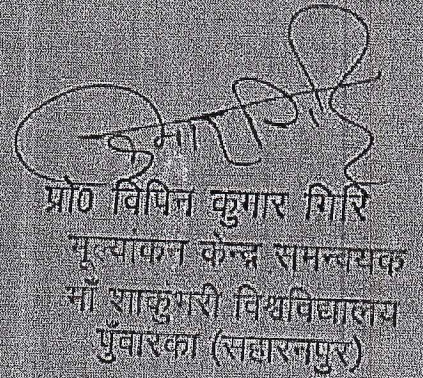 प्रो० विपिन कुमार गिरि
मूल्यांकन केन्द्र समन्वयक
माँ शाकुम्भरी विश्वविद्यालय
पुँवारका (सहारनपुर)